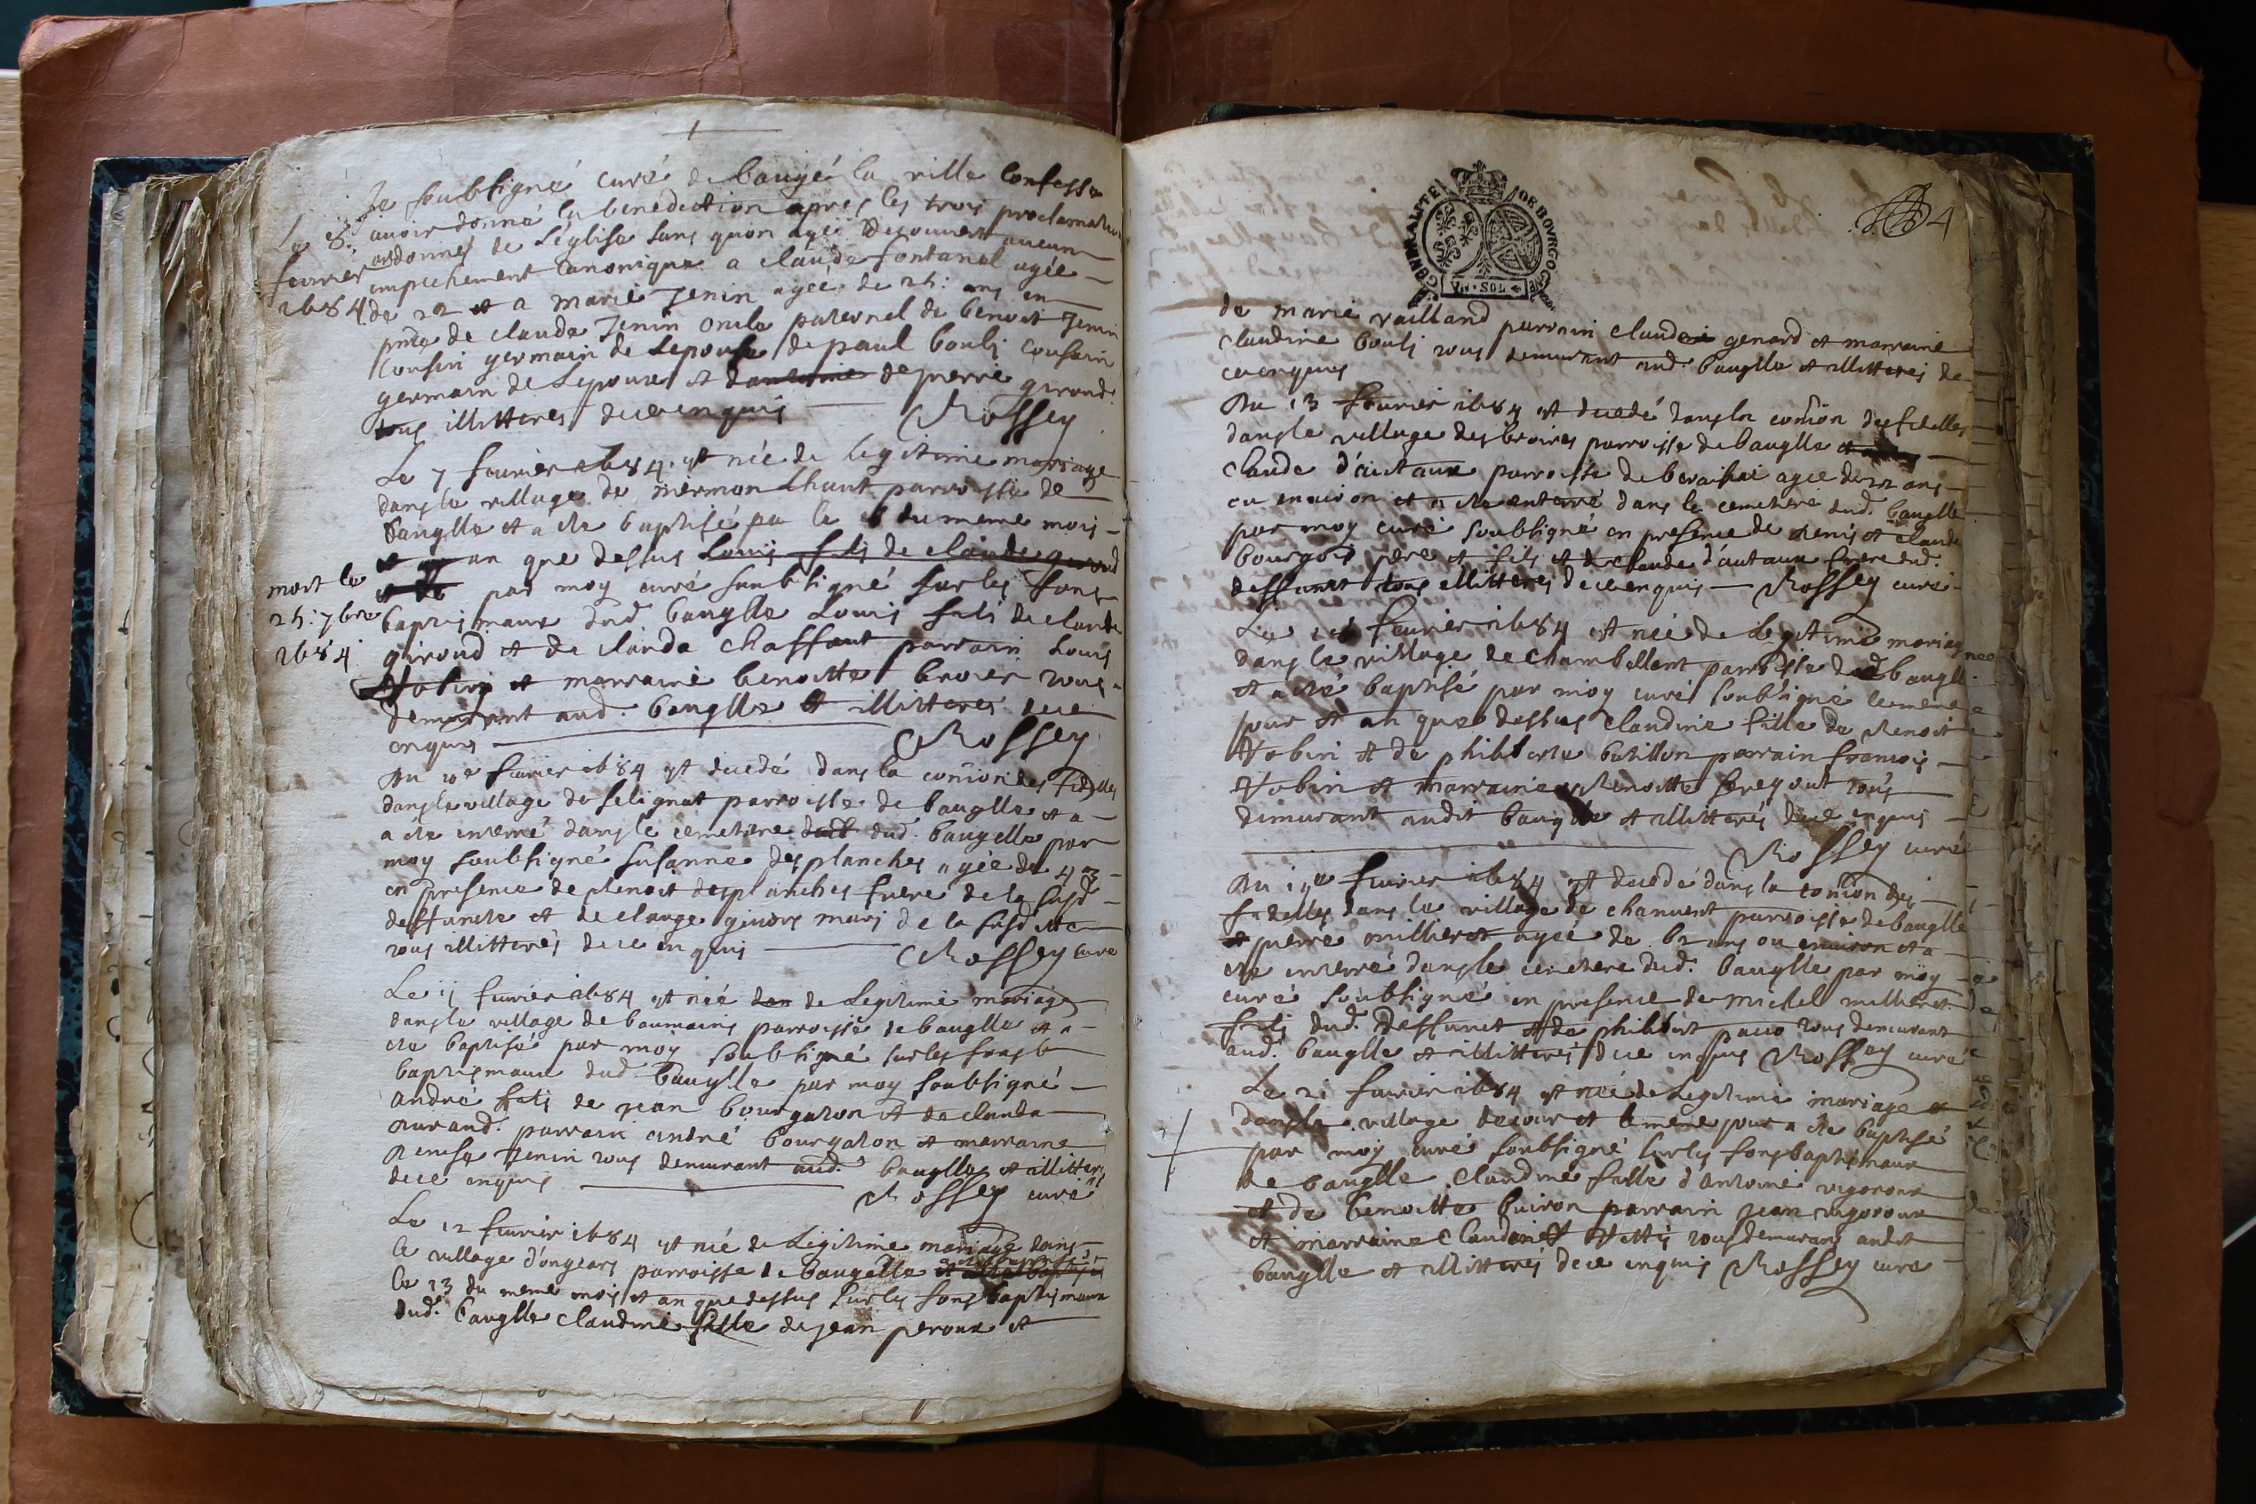 Je soubsigné curé de baugé la ville confesse
avoir donné la benediction apres les trois proclamations
ordonnes de l'église sans quon aye decouvert aucun
empechement canonique a claude fontanel agée
de 22 et a marie Jenin agée de 25: ans en
pnce de claude Jenin oncle paternel de benoit Jenin
cousin germain de lepouse de paul bouli cousin
germain de lepouse et de pierre giroud
tous illitteres de ce enquis
Rossey
Le 6.
fevrier
1684
Le 7 fevrier 1684. est née de legitime mariage
dans le village de mermon parroisse de
bauglle et a ete baptisé le 8 du meme mois
an que dessus Louis fils de claude giroud
par moy curé soubsigné sur les fons
baptismaux dud. bauglle Louis fils de claude
giroud et de claude chaffaut parrain Louis
Nobin et marraine benoitte broier tous
demurant aud. bauglle et illitteres de ce
enquis
Rossey
mort le
25: 7bre
1684
Du 10e fevrier 1684 est decedé dans la comion des fidelles
dans le village de selignat parroisse de bauglle et a
a ete enterré dans le cemetiere dud. baugelle par
moy soubsigné susanne desplanches agée de 43
en presence de Benoit desplanches frere de la susd
deffuncte et de claude mari de la susd
tous illitterés de ce enquis
Rossey curé
Le 11 fevrier 1684 est née de legitime mariage
dans le village de baumains parroisse de baugelle et a
ete baptisé par moy soubsigné sur les fons b
baptismaux dud. baugylle par moy soubsigné
andré fils de jean bourgaron et de claude
durand. parrain andré bourgaron et marraine
Jenin tous demurant aud. baugelle et illitteres
de ce enquis
Rossey curé
Le 12 fevrier 1684 est née de legitime mariage dans
le village d'ongears parroisse de baugelle
le 13 du meme mois et an que dessus sur les fons baptismaux
dud. baugelle claudine fille de jean peroux et
CONRALITE DE BOVRGOGNE
VN · SOL
4
de marie vailland parrain claude genard et marraine
claudine bouli tous demurant aud. bauglle et illitteres de
ce enquis
Du 13 fevrier 1684 est decedé dans la comion des fidelles
dans le village des broires parroisse de bauglle
claude d'autaux parroisse de agee de 22 ans
ou environ et a ete enterré dans le cemetiere dud. bauglle
par moy curé soubsigné en presence de denis et claude
bourgois pere et fils et de claude d'autaux frere dud.
deffunct tous illitteres de ce enquis Rossey curé
Le fevrier 1684 est née de legitime mariage
dans le village de chambellent parroisse dud baugll
et a eté baptisé par moy curé soubsigné le meme
jour et an que dessus claudine fille de Benoit
Nobin et de philiberte butillon parrain francois
Nobin et marraine Benoitte tous
demurant audit bauglle et illitterés de ce enquis
Rossey curé
Du 19e fevrier 1684 est decedé dans la comion des
fidelles dans le village de chanvent parroisse de baugelle
pierre milliere agée de 62 ans ou environ et a
ete enterré dans le cemetiere dud. baugelle par moy
curé soubsigné en presence de michel milliere
fils dud. deffunct et de philibert tous demurant
aud. baugelle et illitteres de ce enquis Rossey curé
Le 21 fevrier 1684 est née de legitime mariage
dans le village de cour et le meme jour a ete baptisé
par moy curé soubsigné sur les fons baptismaux
de baugelle claudine fille d'antoine vigoroux
et de benoitte buiron parrain jean vigoroux
et marraine claudine tous demurans audit
baugelle et illitterés de ce enquis Rossey curé